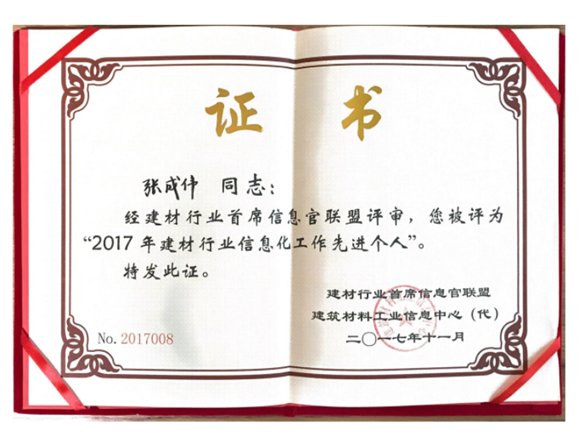 证书
张成伟 同志：
经建材行业首席信息官联盟评审，您被评为
“2017年建材行业信息化工作先进个人”。
特发此证。
建材行业首席信息官联盟
建筑材料工业信息中心（代）
二〇一七年十一月
No.2017008